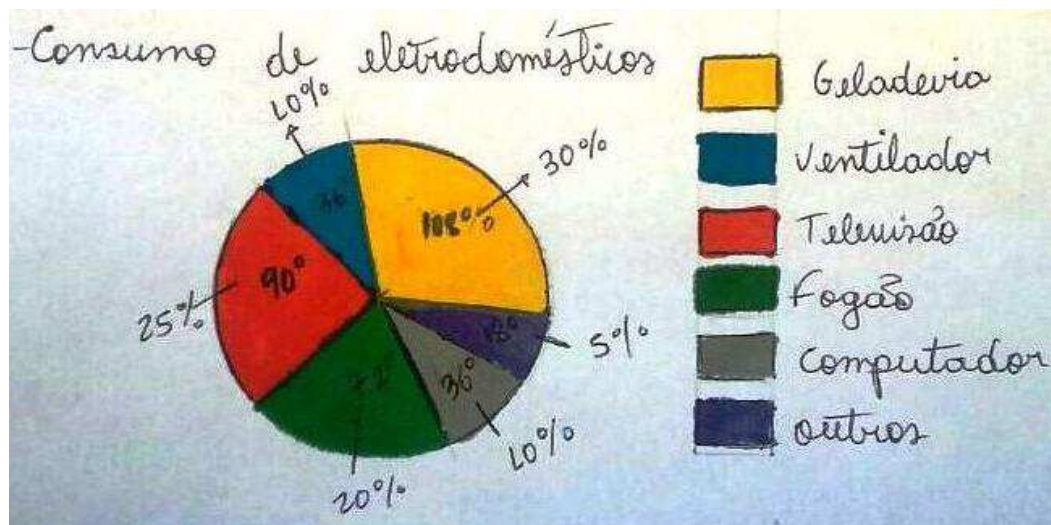 -Consumo de eletrodomésticos
10%
30%
36
108°
90°
25%
18°
5%
36°
72
10%
20%
Geladeria
Ventilador
Televisão
Fogão
Computador
outros